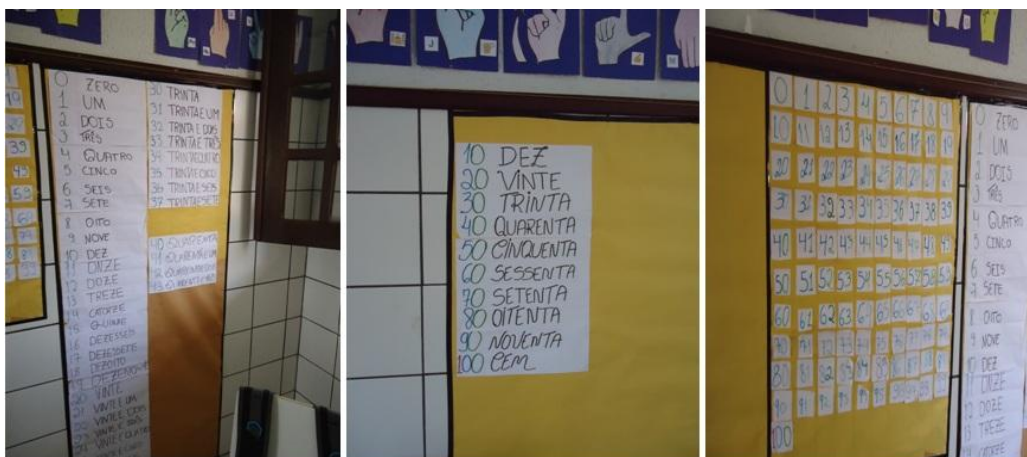 19
29
39
49
59
69
79
0 ZERO
1 UM
2 DOIS
3 TRÊS
4 QUATRO
5 CINCO
6 SEIS
7 SETE
8 OITO
9 NOVE
10 DEZ
11 ONZE
12 DOZE
13 TREZE
14 CATORZE
15 QUINZE
16 DEZESSEIS
17 DEZESSETE
18 DEZOITO
19 DEZENOVE
20 VINTE
21 VINTE E UM
22 VINTE E DOIS
23 VINTE E TRÊS
24 VINTE E QUATRO
30 TRINTA
31 TRINTA E UM
32 TRINTA E DOIS
33 TRINTA E TRÊS
34 TRINTA QUATRO
35 TRINTA E CINCO
36 TRINTA E SEIS
37 TRINTA E SETE
40 QUARENTA
41 QUARENTA E UM
J
10 DEZ
20 VINTE
30 TRINTA
40 QUARENTA
50 CINQUENTA
60 SESSENTA
70 SETENTA
80 OITENTA
90 NOVENTA
100 CEM
0 1 2 3 4 5 6 7 8 9
10 11 12 13 14 15 16 17 18 19
20 21 22 23 24 25 26 27 28 29
31 32 33 34 35 36 37 38 39
40 41 42 43 44 45 46 47 48 49
50 51 52 53 54 55 56 57 58 59
60 61 62 63 64 65 66 67
70 71 72 73 74 75 76 77 78 79
80 81 82 83 84 85 86 87 88
90 91 92 93 94 95
100
0 ZERO
1 UM
2 DOIS
3 TRÊS
4 QUATRO
5 CINCO
6 SEIS
7 SETE
8 OITO
9 NOVE
10 DEZ
11 ONZE
12 DOZE
13 TREZE
14 CATORZE